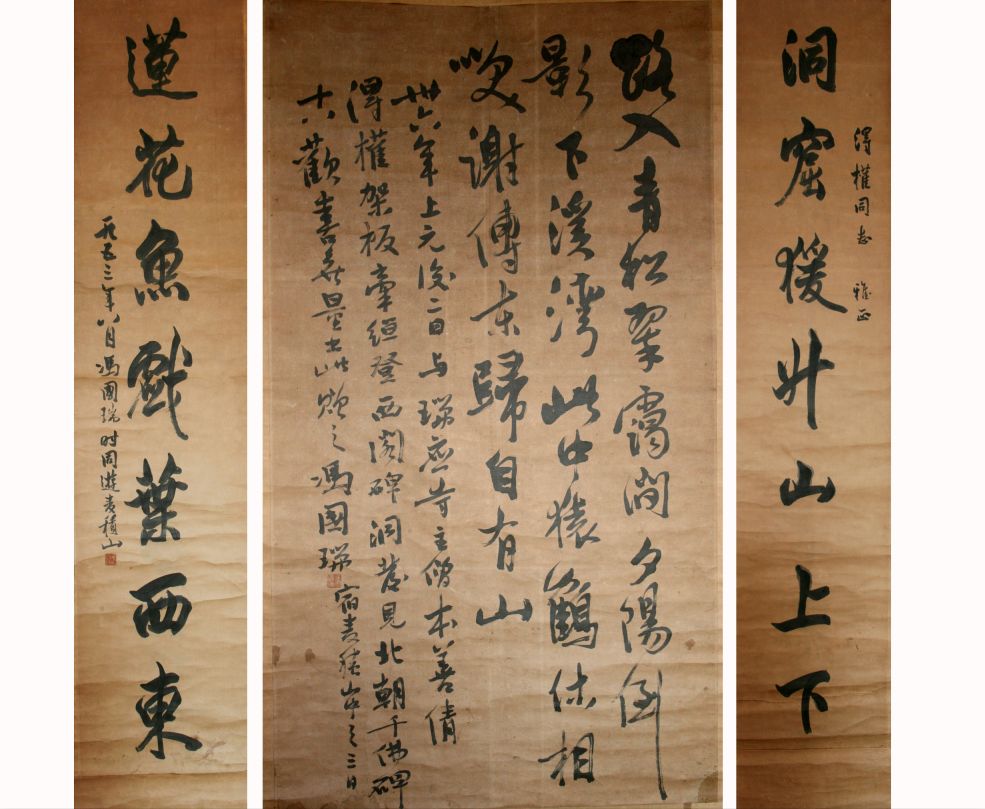 洞窟猨升山上下
得權同志 雅正
路入青松翠靄間夕陽倒
影下溪灣此中猿鶴休相
笑謝傅東歸自有山
卅六年上元後二日与瑞應寺主僧本善倩
得權架板牽絙登西閣碑洞發見北朝千佛碑
十八歡喜無量書此貽之馮國瑞
宿麦積山中之三日
蓮花魚戲葉西東
一九五三年八月馮國瑞时同遊麦積山